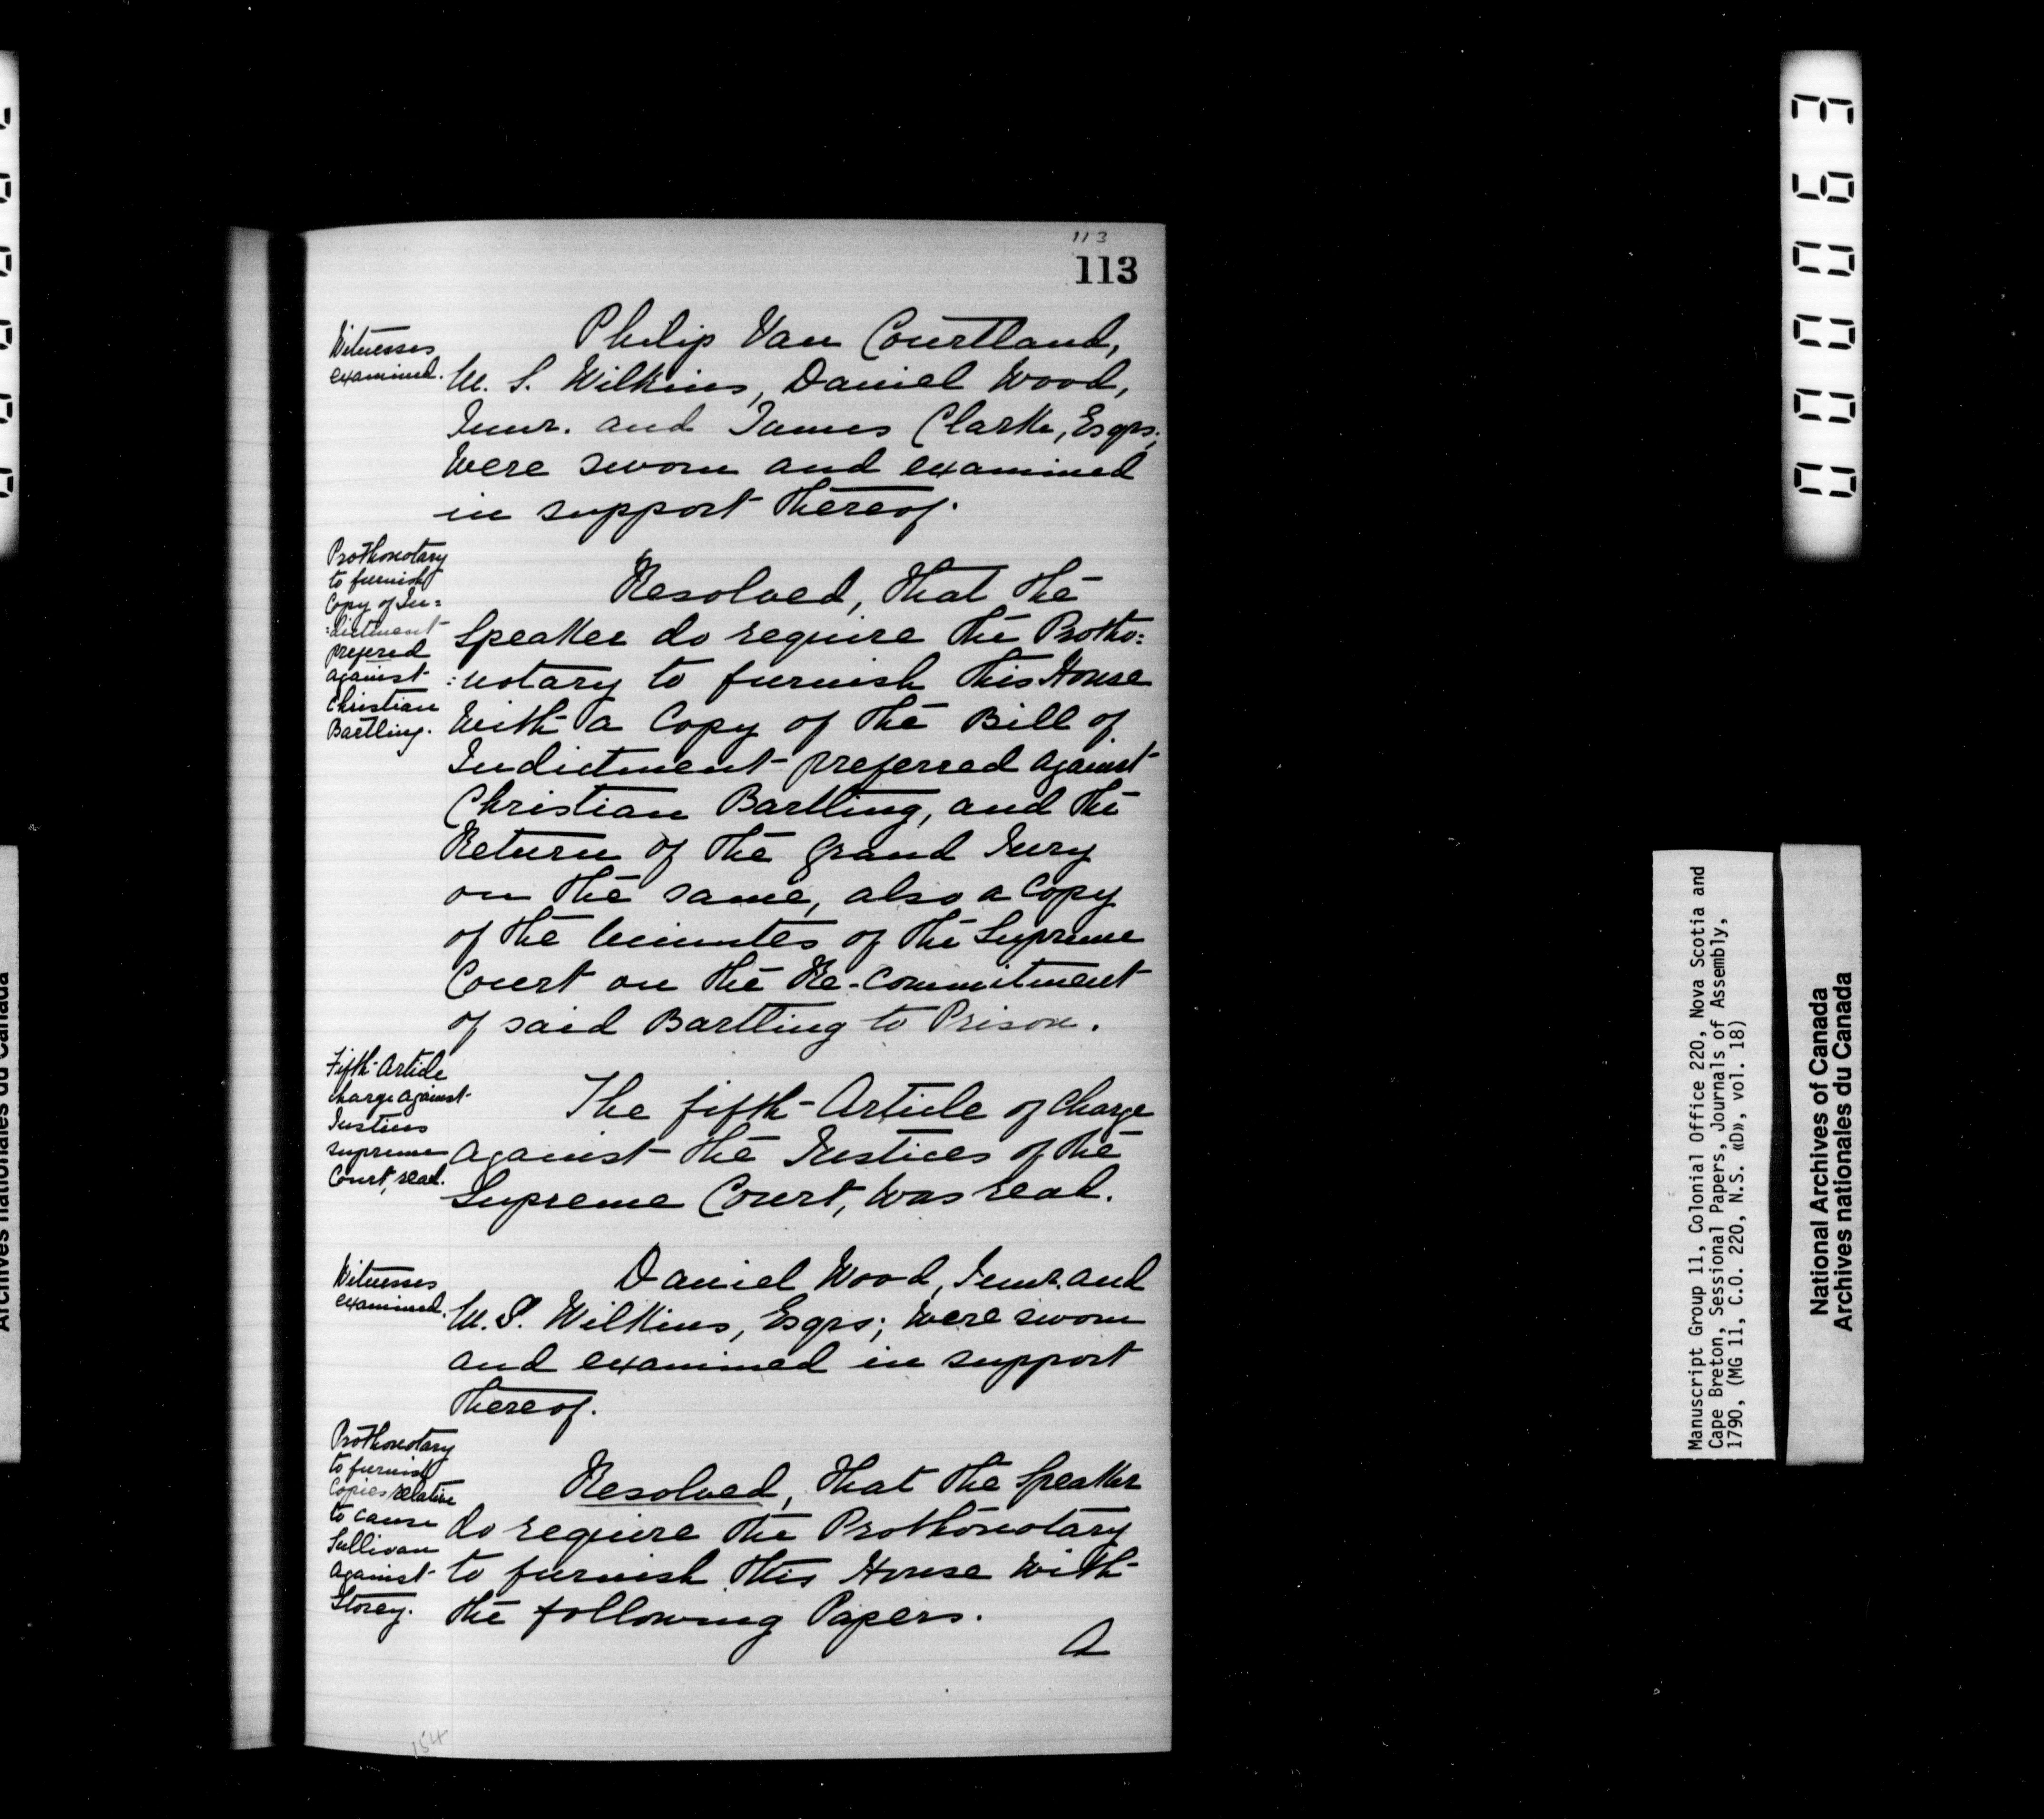 113
113
Witnesses
examined.
Philip Van Courtland,
M. S. Wilkins, Daniel Wood,
Junr. and James Clarke, Esqrs;
Were sworn and examined
in support thereof.
Prothonotary
to furnish
Copy of In=
=dictment
prefered
against
Christian
Bartling.
Resolved, that the
Speaker do require the Protho=
=notary to furnish this House
With a Copy of the Bill of
Indictment preferred against
Christian Bartling, and the
Return of the Grand Jury
on the same, also a Copy
of the Minutes of the Supreme
Court on the Re-Commitment
of said Bartling to Prison.
Fifth Article
Charge against
Justices
supreme
Court, read.
The fifth Article of Charge
against the Justices of the
Supreme Court, Was read.
Witnesses
examined.
Daniel Wood, Junr. and
M. S. Wilkins, Esqrs; Were sworn
and examined in support
thereof.
Prothonotary
to furnish
Copies relative
to cause
Sullivan
against
Storey.
Resolved, that the Speaker
do require the Prothonotary
to furnish this House With
the following Papers.
A
154
000063
Manuscript Group 11, Colonial Office 220, Nova Scotia and
Cape Breton, Sessional Papers, Journals of Assembly,
1790, (MG 11, C.O. 220, N.S. «D», vol. 18)
National Archives of Canada
Archives nationales du Canada
Archives nationales du Canada